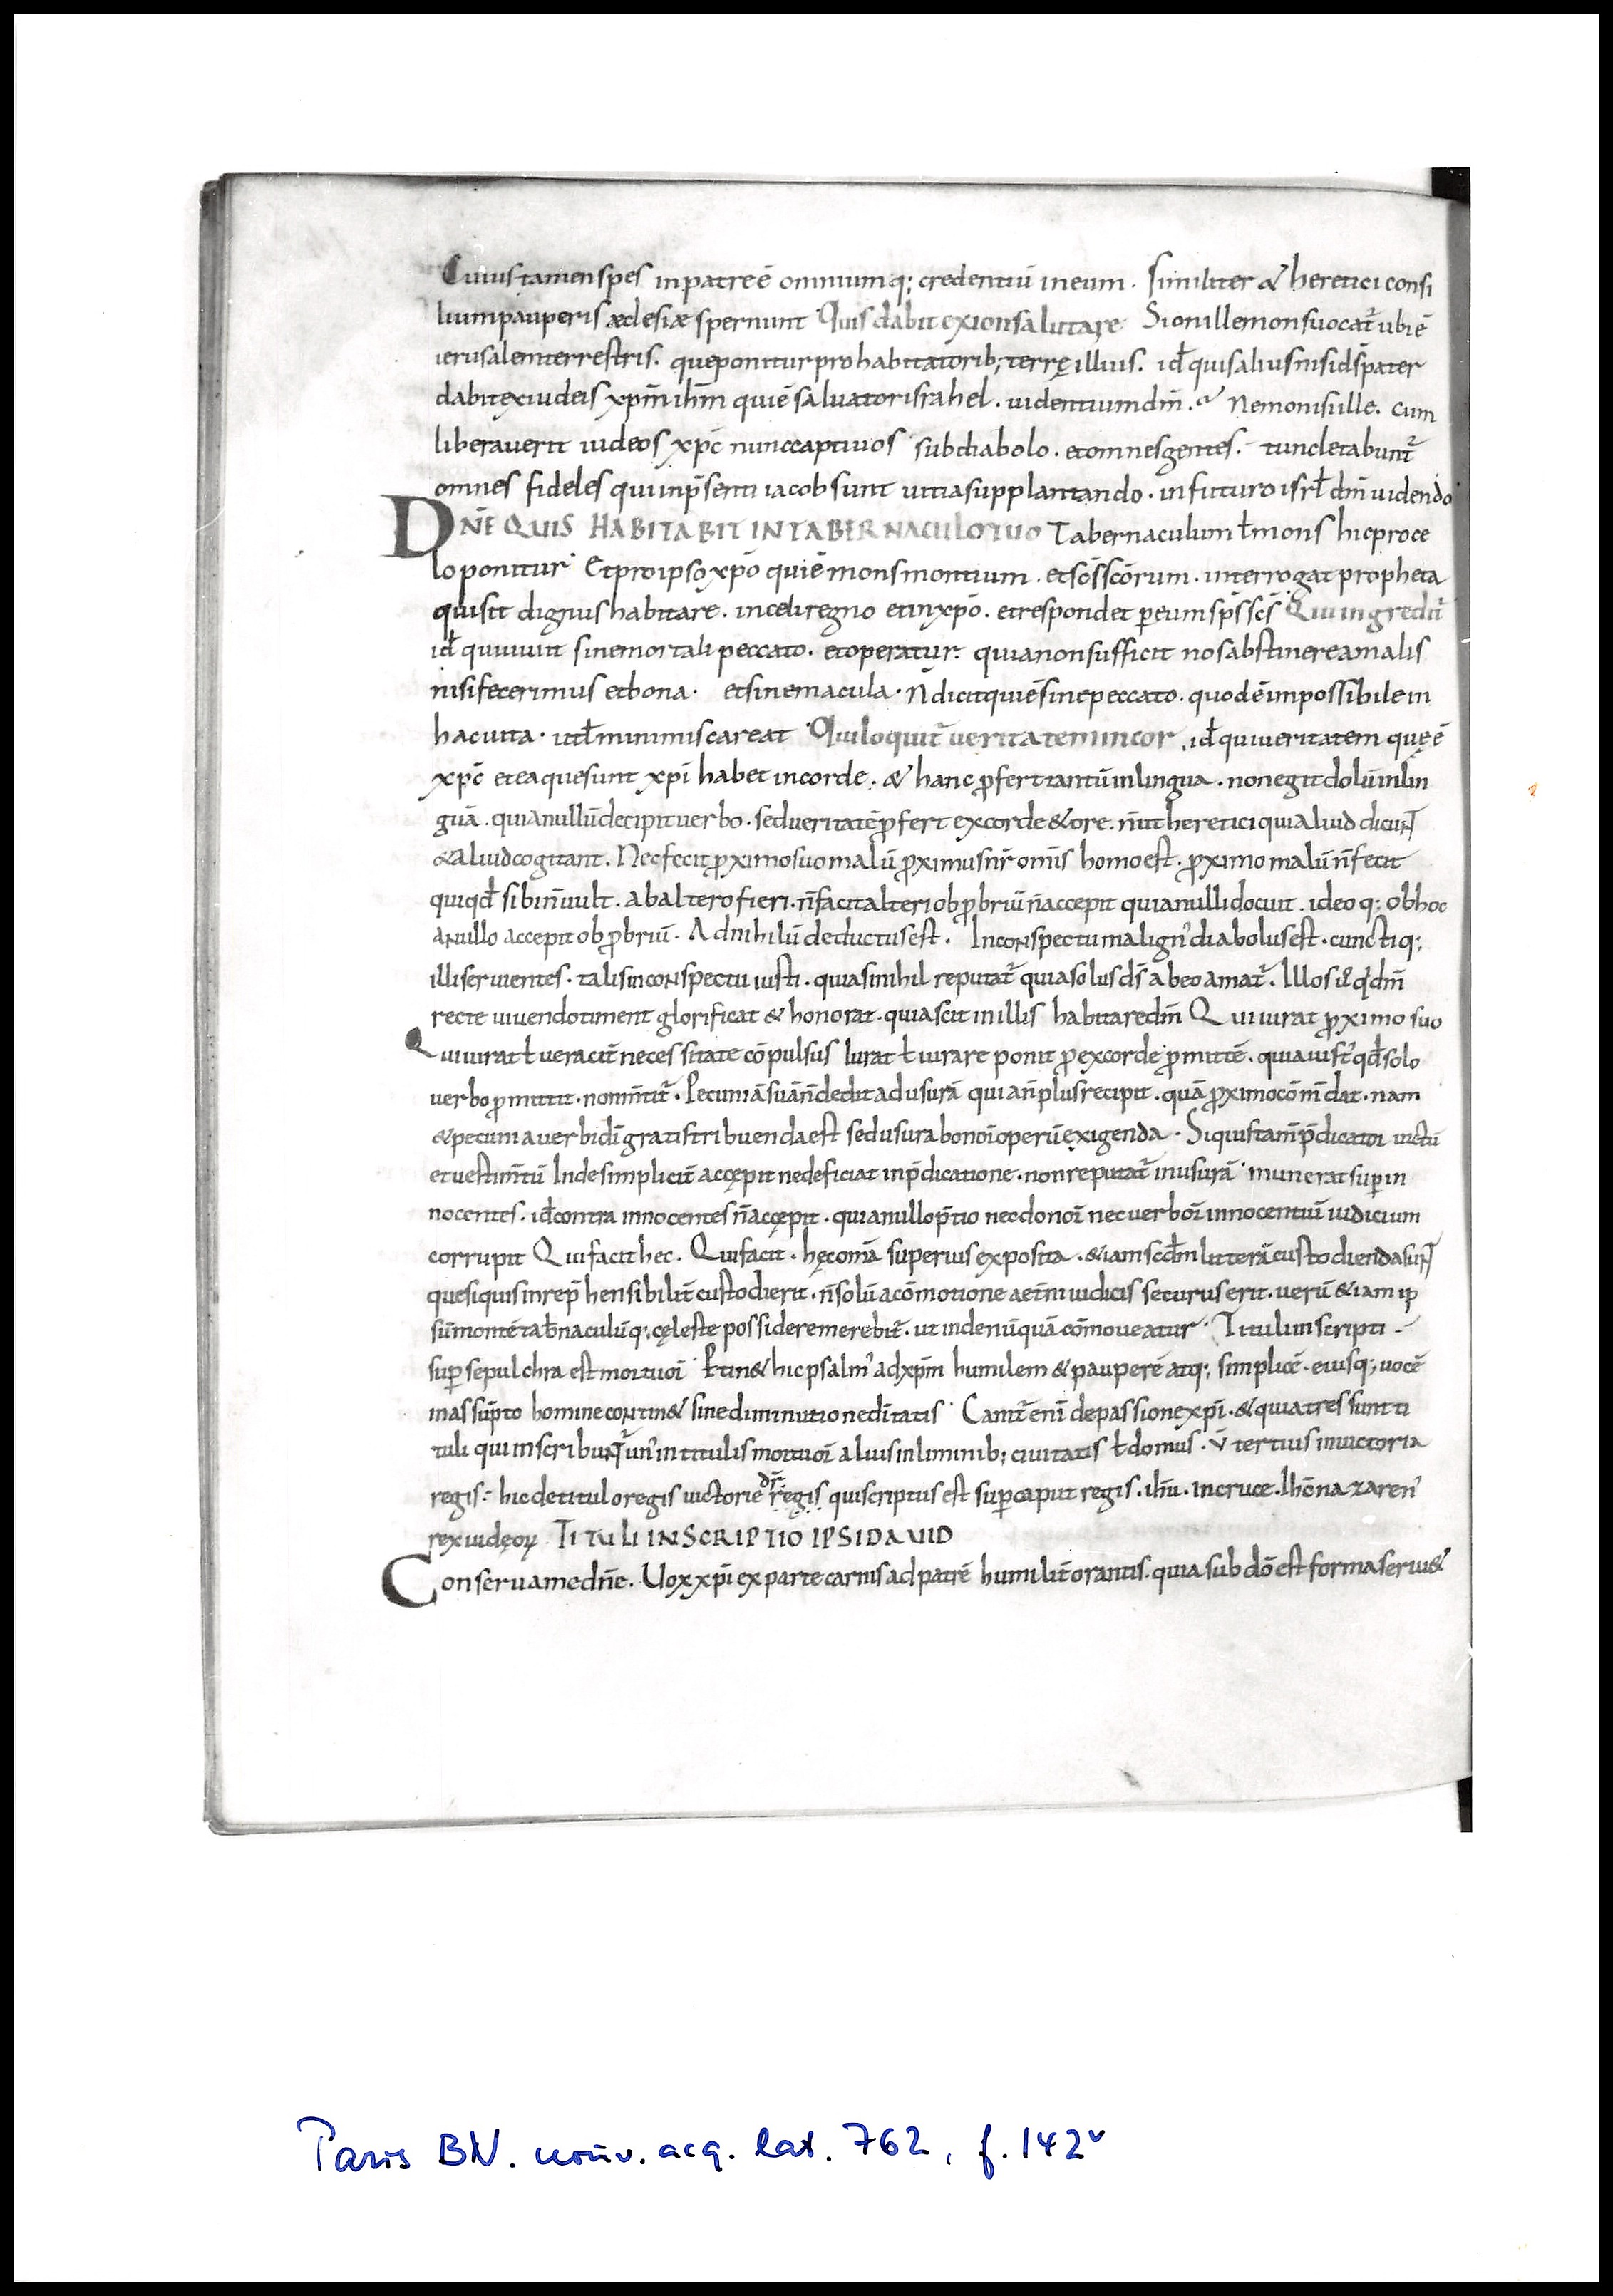 Cuius tamen spes in patre ē omniumq; credentiū in eum. Similiter & heretici consi
lium pauperis æclesiæ spernunt Quis dabit ex ion salutare Sion ille mons uocat̄ ubi ē
ierusalem terrestris. que ponitur pro habitatorib; terrę illius. id̄ quis alius nisi ds̄ pater
dabit ex iudeis xp̄m ih̄m qui ē saluator israhel. uidentium dm̄. Nemo nisi ille. cum
liberauerit iudeos xp̄c nunc captiuos sub diabolo. et omnes gentes. tunc letabunt̄
omnes fideles qui in p̄senti iacob sunt uitia supplantando. in futuro isrl̄ dm̄ uidendo
DN̄E QUIS HABITABIT IN TABERNACULO TUO Tabernaculum ł mons hic pro ce
lo ponitur Et pro ipso xp̄o qui ē mons montium. et sc̄s sc̄orum. interrogat propheta
qui sit dignus habitare. in celi regno et in xp̄o. et respondet per eum sp̄s sc̄s Qui ingredit̄
id̄ qui uiuit sine mortali peccato. et operatur. quia non sufficit nos abstinere a malis
nisi fecerimus et bona. et sine macula. n̄ dicit qui ē sine peccato. quod ē impossibile in
hac uita. ut ł minimis careat Qui loquit̄ ueritatem in cor, id̄ qui ueritatem quę ē
xp̄c et ea que sunt xp̄i habet in corde. & hanc p̄fert tantū in lingua. non egit dolū in lin
guā. quia nullū decipit uerbo. sed ueritatē p̄fert ex corde & ore. n̄ ut heretici qui aliud dicunt
& aliud cogitant. Nec fecit p̄ximo suo malū p̄ximus nr̄ omīs homo est. p̄ximo malū n̄ fecit
qui qd̄ sibi n̄ uult. ab altero fieri. n̄ facit alteri obp̄briū n̄ accepit quia nulli docuit. ideoq; ob hoc
a nullo accepit obp̄briū. Ad nihilū deductus est. In conspectu malign' diabolus est. cunctiq;
illi seruientes. talis in conspectu iusti. quasi nihil reputat̄ quia solus ds̄ ab eo amat̄. Illos u̅ q̇ dm̄
recte uiuendo timent glorificat & honorat. quia scit in illis habitare dm̄ Qui iurat p̄ximo suo
Qui iurat ł ueracit̄ necessitate cōpulsus Iurat ł iurare ponit p̄ ex corde p̄mittē. quia iust' qd̄ solo
uerbo p̄mittit. non mn̄tit̄. Pecuniā suā n̄ dedit ad usurā quia n̄ plus recipit. quā p̄ximo cōm̄dat. nam
& pecunia uerbi dī gratis tribuenda est sed usura bonoī operū exigenda. Si quis tam̄ p̄dicatoī uictū
et uestim̄tū Inde simplicit̄ accępit ne deficiat in p̄dicatione. non reputat̄ in usurā munera super in
nocentes. id̄ contra innocentes n̄ accępit. quia nullo p̄tio nec donoī nec uerboī innocentiū iudicium
corrupit Qui facit hec. Qui facit. hęc omā superius exposita. & iam scd̄m litterā custodienda sunt
que si quis inrep̄hensibilit̄ custodierit. n̄ solū a cōmotione aet̄ni iudicis securus erit. uerū & iam ip
sū montē tab̄naculūq; cęleste possidere merebit̄. ut inde nūquā cōmoueatur Tituli inscripti
sup̄ sepulchra est mortuoī Ptin& hic psalm' ad xp̄m humilem & pauperē atq; simplicē. eiusq; uocē
in assūpto homine contin& sine diminutione deītatis Canit̄ enī de passione xp̄i. & quia tres sunt ti
tuli qui inscribunt̄ un' in titulis mortuoī alius in liminib; ciuitatis ł domus. ū tertius in uictoria
regis. hic de titulo regis uictorie dr̄ regis qui scriptus est sup̄ caput regis. ih̄u. in cruce. Ih̄c nazaren'
rex iudęoꝝ TITULI INSCRIPTIO IPSI DAUID
Conserua me dn̄e. Uox xp̄i ex parte carnis ad patrē humilit̄ orantis. quia sub dō est forma serui &
Paris BN. nouv. acq. lat. 762, f. 142ᵛ